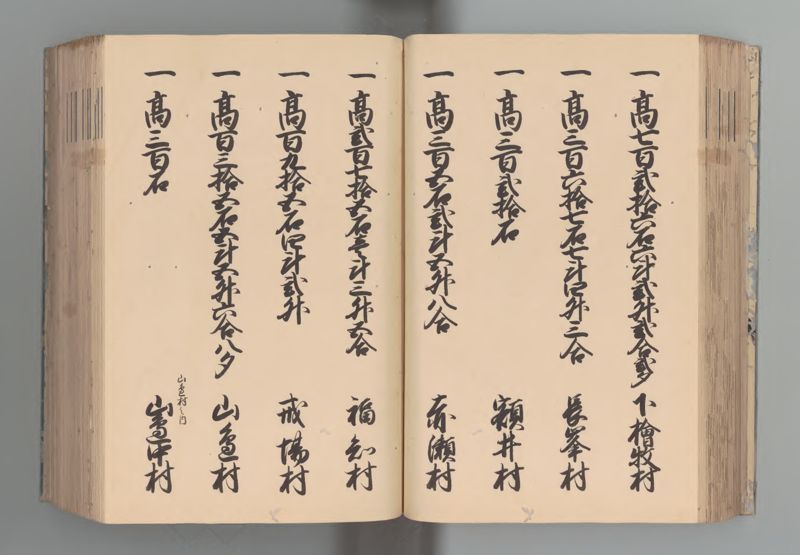 一 高七百弐拾六石六斗弐升弐合弐夕 下檜牧村
一 高三百六拾七石七斗四升三合 長峯村
一 高三百弐拾石 額井村
一 高三百五石弐斗五升八合 赤瀬村
一 高弐百七拾五石壱斗三升五合 福知村
一 高百九拾五石四斗弐升 戒場村
一 高百三拾五石五斗五升六合八夕 山邊村
一 高三百石 山邊村之内 山邊中村